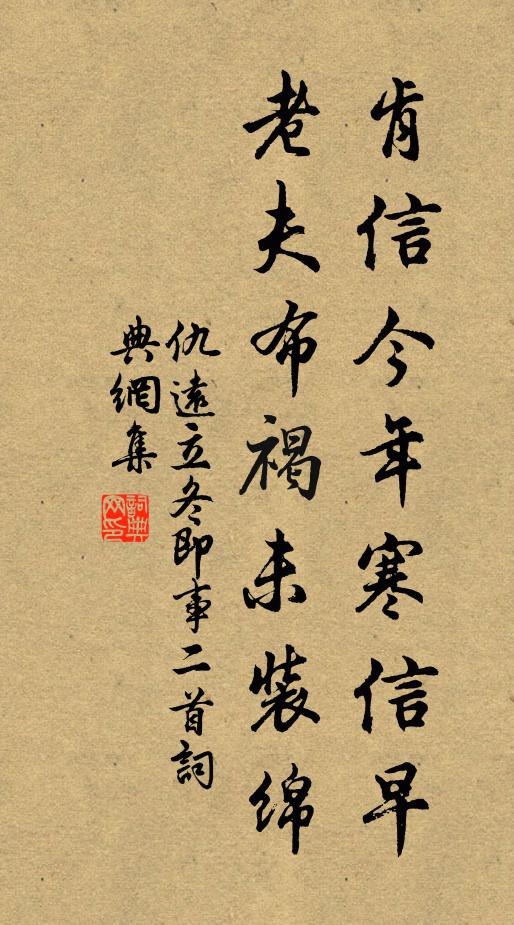 肯信今年寒信早
老夫布褐未装绵
仇遠立冬即事二首詞
典網集
詞典
网印